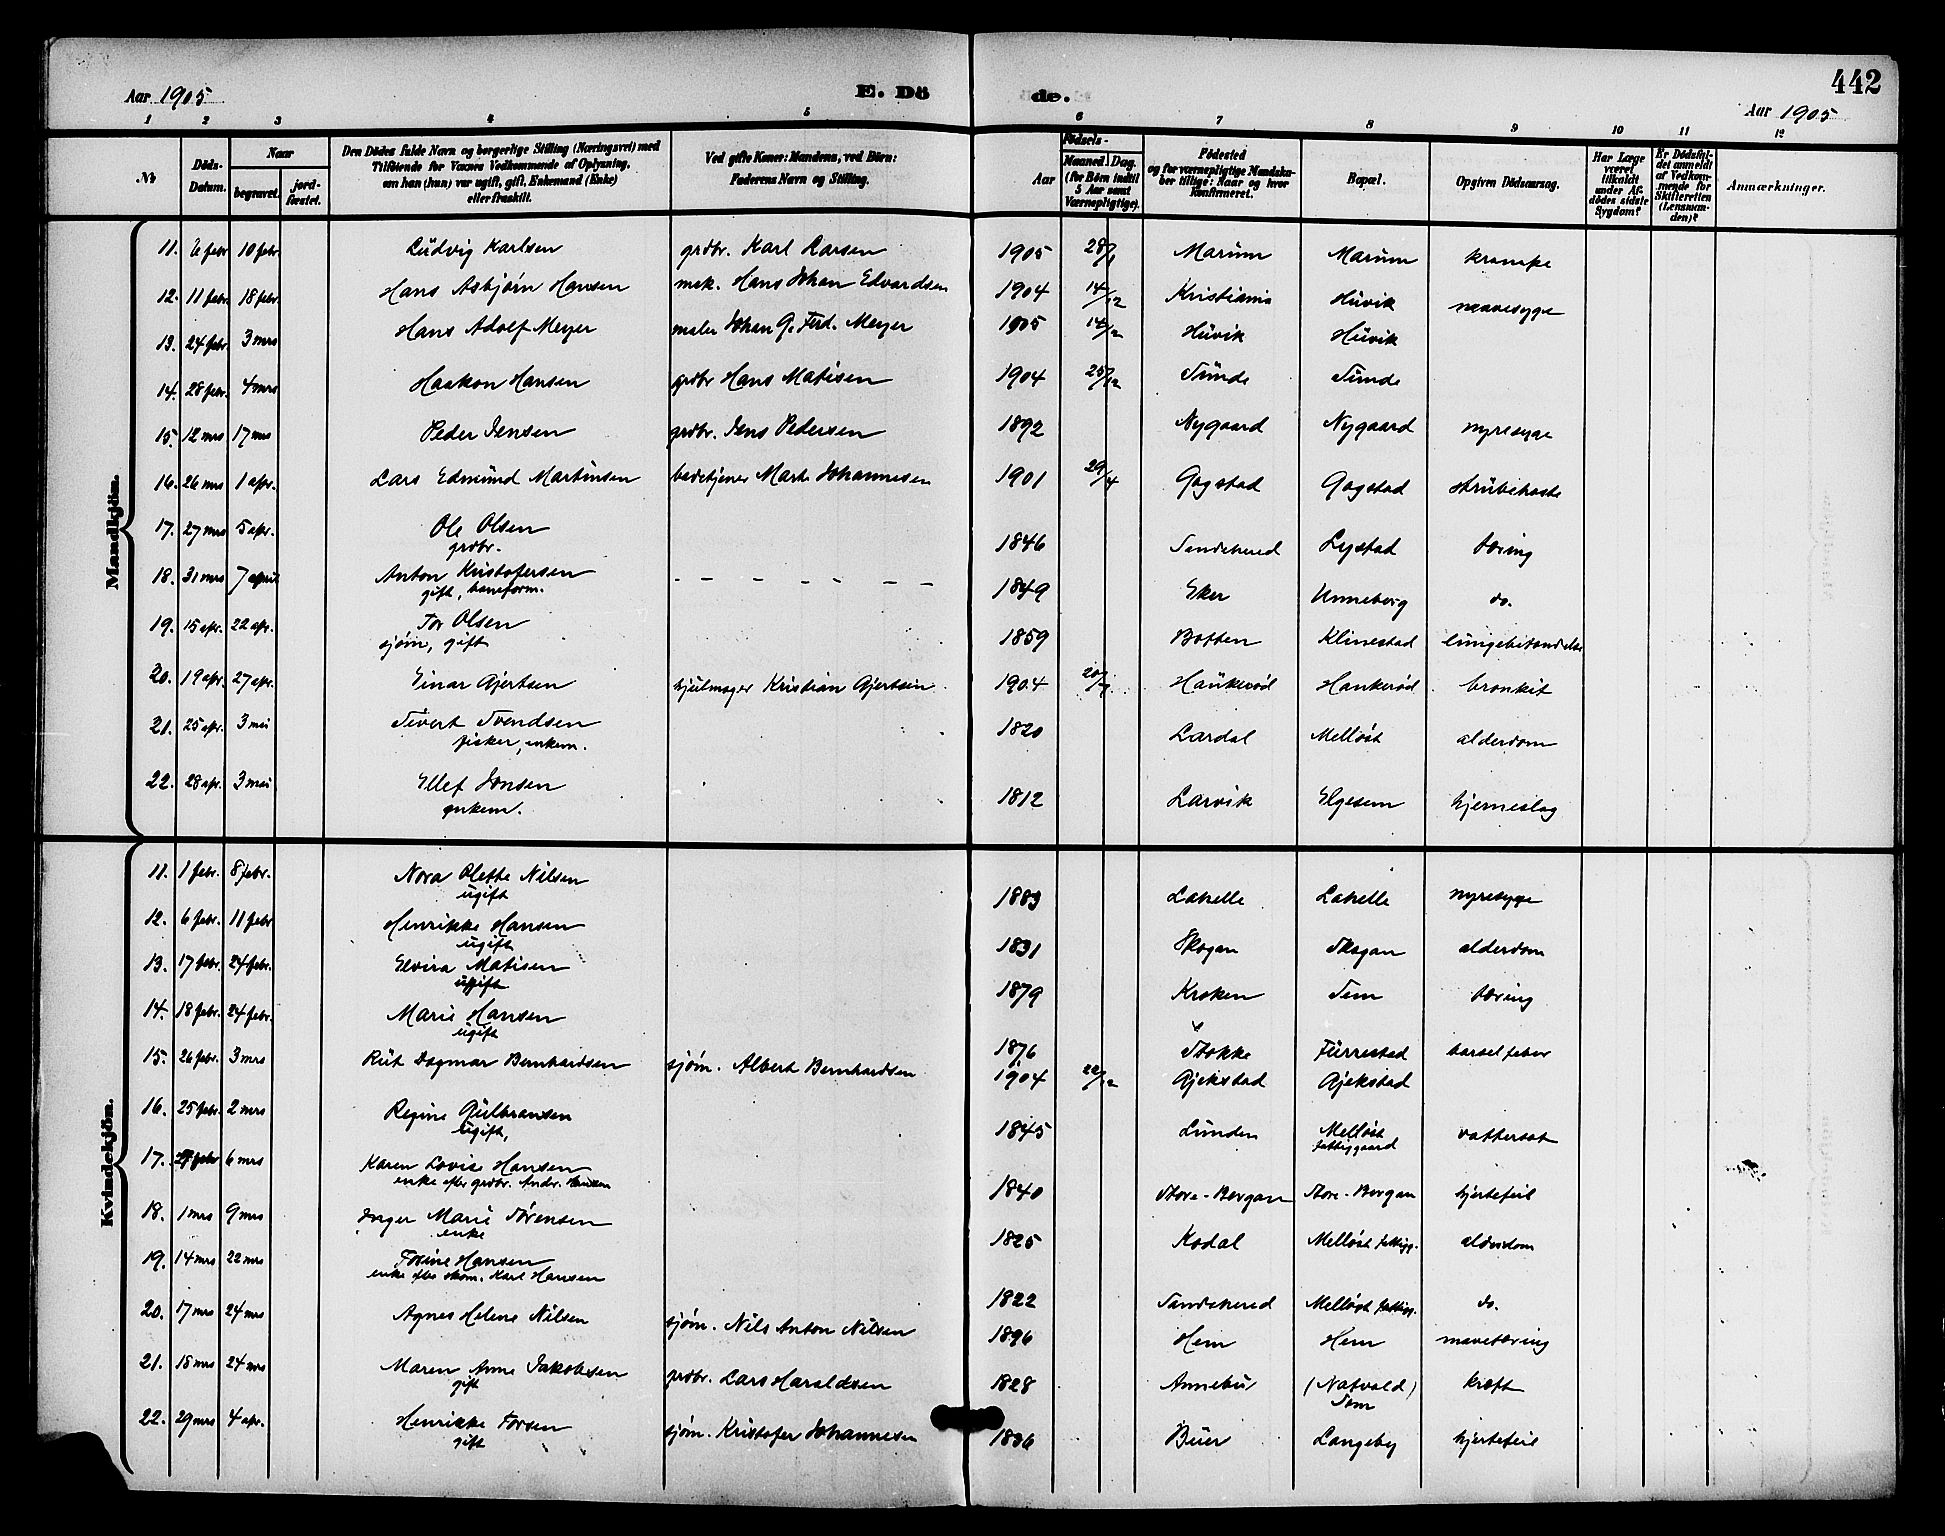 Aar 1905
E. Dö de.
442
Aar 1905
1 2 3 4 5 6 7 8 9 10 11 12
No
Döds-Datum.
Naar
begravet.
jord-fæstet.
Den Dødes fulde Navn og borgerlige Stilling (Næringsvei) med Tilføiende for Voxnes Vedkommende af Oplysning, om han (hun) var ugift, gift, Enkemand (Enke) eller fraskilt.
Ved gifte Koner: Mandens, ved Börn: Faderens Navn og Stilling.
Födsels-
Aar
Maaned. Dag. (for Börn indtil 5 Aar samt Værnepligtige).
Födested og for værnepligtige Mandskaber tillige: Naar og hvor Konfirmeret.
Bopæl.
Opgiven Dödsaarsag.
Har Læge været tilkaldt under Afdödes sidste Sygdom?
Er Dödsfaldet anmeldt af Vedkommende for Skifteretten (Lensmanden)?
Anmærkninger.
Mandkjön.
11. 6 febr 10 febr. Ludvig Karlsen grdbr. Karl Larsen 1905 28/1 Marum Marum krampe
12. 11 febr. 18 febr. Hans Asbjørn Hansen mek. Hans Johan Edvardsen 1904 14/12 Kristiania Huvik mavesyge
13. 24 febr. 3 mrs Hans Adolf Meyer maler Johan G. Ferd. Meyer 1905 14/2 Huvik Huvik
14. 28 febr. 4 mrs Haakon Hansen grdbr Hans Matisen 1904 25/12 Sunde Sunde
15. 12 mrs 17 mrs Peder Jensen grdbr. Jens Pedersen 1892 Nygaard Nygaard nyresyge
16. 26 mrs 1 apr. Lars Edmund Martinsen badetjener Marti Johannesen 1901 29/4 Gogstad Gogstad strubehoste
17. 27 mrs 5 apr. Ole Olsen 1846 Sandeherred Lystad tæring
grdbr.
18. 31 mrs 7 april Anton Kristofersen - - - - - - 1849 Eker Unneberg do.
gift, baneform.
19. 15 apr. 22 apr. Tor Olsen 1859 Botten Klinestad lungebetændelse
sjøm, gift
20. 19 apr. 27 apr. Einar Gjertsen hjulmager Kristian Gjertsen 1904 20/7 Haukerød Haukerød bronkit
21. 25 apr. 3 mai Sivert Svendsen 1820 Lardal Melløst alderdom
fisker, enkem.
22. 28 apr. 3 mai Ellef Jonsen 1812 Larvik Elgesem hjerneslag
enkem.
Kvindekjön.
11. 1 febr. 8 febr. Nora Olette Nilsen 1883 Lahelle Lahelle nyresyge
ugift
12. 6 febr. 11 febr Henrikke Hansen 1831 Skogan Skogan alderdom
ugift
13. 17 febr. 24 febr. Elvira Matisen 1879 Kroken Sem tæring
ugift
14. 18 febr. 24 febr. Marie Hansen 1876 Stokke Furrestad barselfeber
ugift
15. 26 febr. 3 mrs Rut Dagmar Bernhardsen sjøm. Albert Bernhardsen 1904 22/12 Gjekstad Gjekstad
16. 25 febr. 2 mrs Regine Gulbransen 1845 Lunden Melløst fattiggaard vattersot
ugift,
17. 27 febr 6 mrs Karen Lovise Hansen 1840 Store-Bergan Store-Bergan hjertefeil
enke efter grdbr. Andr. Hansen
18. 1 mrs 9 mrs Inger Marie Sørensen 1825 Kodal Melløst fattigg. alderdom
enke
19. 14 mrs 22 mrs Torine Hansen 1822 Sandeherred Melløst fattigg. do.
enke efter skom. Karl Hansen
20. 17 mrs 24 mrs Agnes Helene Nilsen sjøm. Nils Anton Nilsen 1896 Hem Hem mavetæring
21. 18 mrs 24 mrs Maren Anne Jakobsen grdbr. Lars Haraldsen 1828 Annebu (Natvold) Sem kræft
gift
22. 29 mrs 4 apr. Henrikke Torsen sjøm. Kristofer Johannesen 1836 Buer Langeby hjertefeil
gift